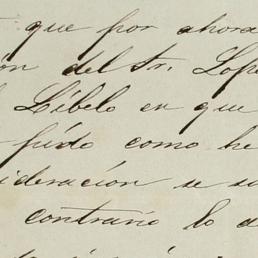 que por ahora
ión del Sr. Lope
Líbelo en que
fúndo como he
ideración se s
contrario lo d